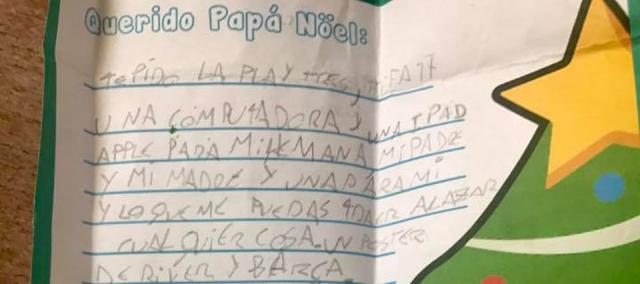 Querido Papá Nöel:
TE PIDO LA PLAY TRES, FIFA 17
UNA COMPUTADORA Y UNA IPAD
APPLE PARA MI HEMANA MI PADRE
Y MI MADRE Y UNA PARA MI
Y LO QUE ME PUEDAS TRAER AL AZAR
CUALQUIER COSA. UN POSTER
DE RIVER Y BARÇA